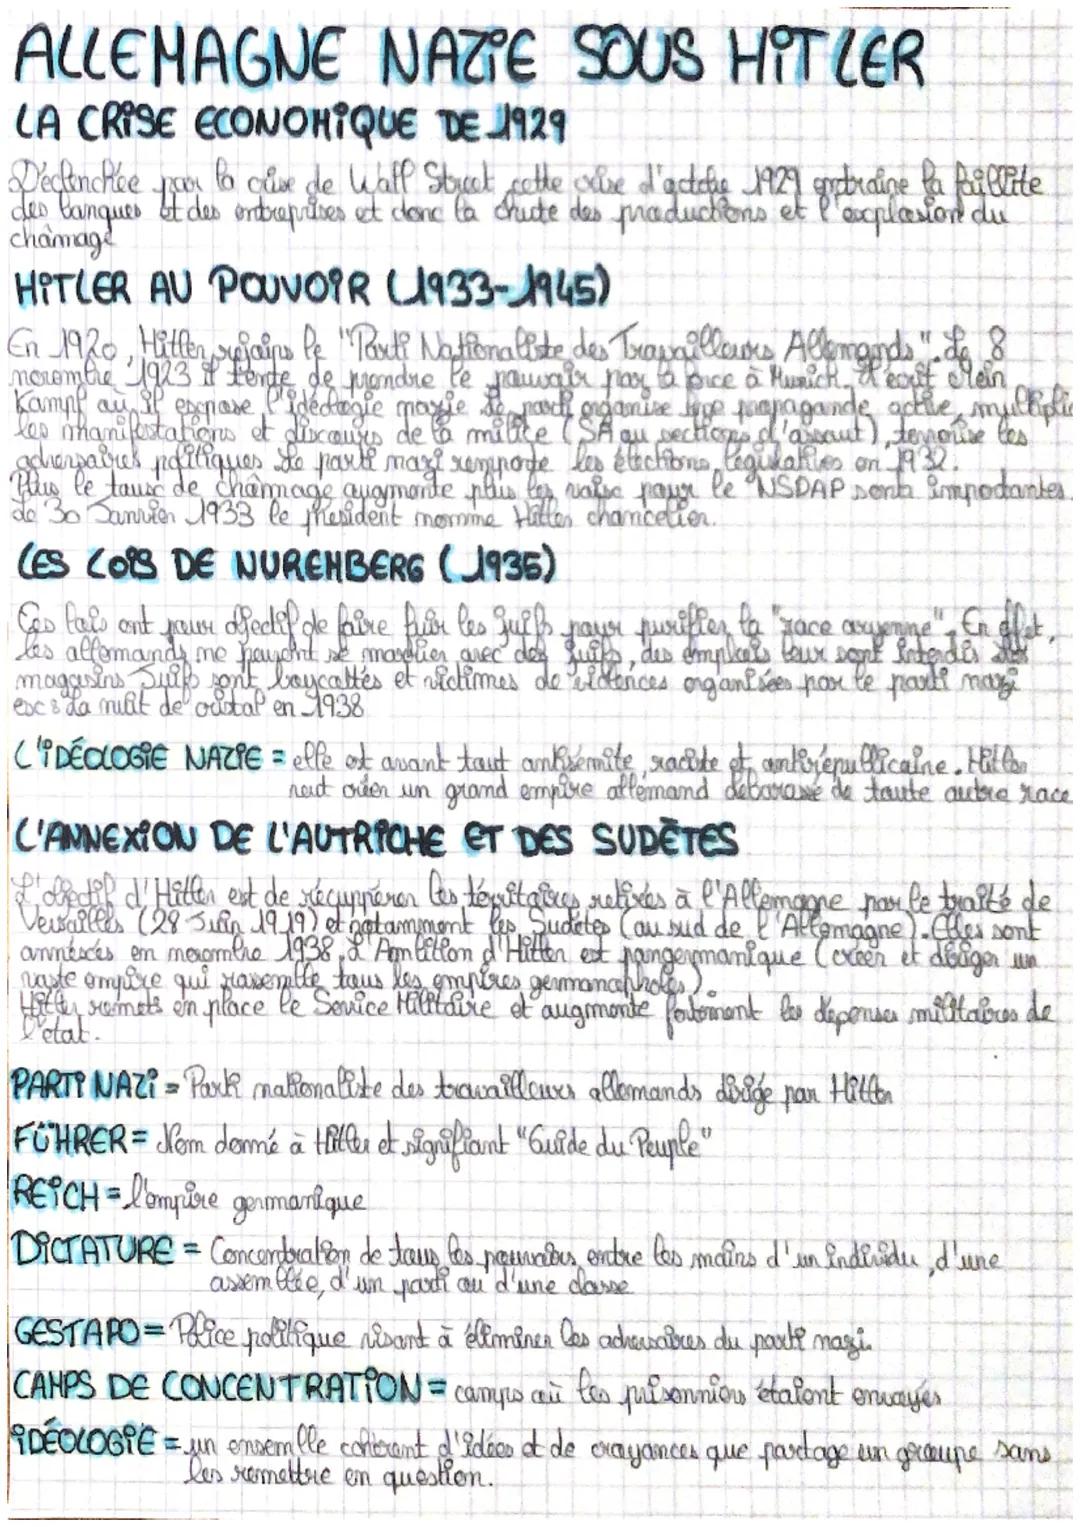 ALLEMAGNE NAZIE SOUS HITLER
LA CRISE ECONOMIQUE DE 1929
Déclenchée par la crise de Wall Street cette crise d'octobre 1929 entraine la faillite
des banques et des entreprises et donc la chute des productions et l'explosion du
chômage
HITLER AU POUVOIR (1933-1945)
En 1920, Hitler rejoins le "Parti Nationaliste des Travailleurs Allemands". Le 8
novembre 1923 il tente de prendre le pouvoir par la force à Munich. Il écrit Mein
Kampf où il expose l'idéologie nazie. Le parti organise une propagande active, multiplie
les manifestations et discours de la milice (SA ou sections d'assaut), terrorise les
adversaires politiques. Le parti nazi remporte les élections législatives en 1932.
Plus le taux de chômage augmente plus les voix pour le NSDAP sont importantes.
Le 30 Janvier 1933 le président nomme Hitler chancelier.
LES LOIS DE NUREMBERG (1935)
Ces lois ont pour objectif de faire fuir les juifs pour purifier la "race aryenne". En effet,
les allemands ne peuvent se marier avec des juifs, des emplois leur sont interdis
magasins Juifs sont boycottés et victimes de violences organisées par le parti nazi
ex : La nuit de cristal en 1938
L'IDÉOLOGIE NAZIE = elle est avant tout antisémite, raciste et antirépublicaine. Hitler
veut créer un grand empire allemand débarassé de toute autre race
L'ANNEXION DE L'AUTRICHE ET DES SUDÈTES
L'objectif d'Hitler est de récuppérer les térritoires retirés à l'Allemagne par le traité de
Versailles (28 Juin 1919) et notamment les Sudètes (au sud de l'Allemagne). Elles sont
annéxées en novembre 1938. L'Ambition d'Hitler est pangermanique (créer et diriger un
vaste empire qui rassemble tous les empires germanophones).
Hitler remets en place le Service Militaire et augmente fortement les dépenses militaires de
l'état.
PARTI NAZI = Parti nationaliste des travailleurs allemands dirigé par Hitler
FÜHRER = Nom donné à Hitler et signifiant "Guide du Peuple"
REICH = l'empire germanique
DICTATURE = Concentration de tous les pouvoirs entre les mains d'un individu, d'une
assemblée, d'un parti ou d'une classe
GESTAPO = Police politique visant à éliminer les adversaires du parti nazi.
CAMPS DE CONCENTRATION = camps où les prisonniers étaient envoyés
IDÉOLOGIE = un ensemble cohérent d'idées et de croyances que partage un groupe sans
les remettre en question.